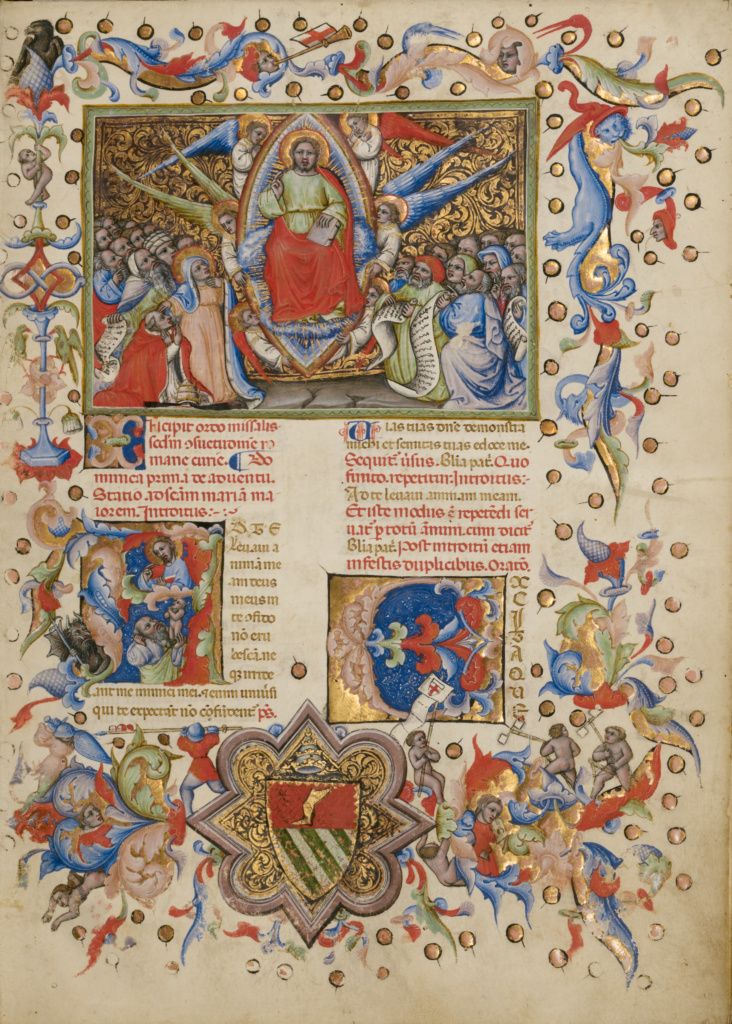 Incipit ordo missalis
scdm ↄsuetudinem ro
mane curie. Do
minica prima de adventu.
Statio ad scam mariam ma
iorem. Introitus:
A D T E
levavi a
nimã me
am deus
meus in
te ↄfido
nõ eru
bescã. ne
qz irride
ant me inimici mei. etenim univsi
qui te expectãt nõ ↄfũdent. ps.
Vias tuas dñe demonstra
michi et semitas tuas edoce me.
Sequit̃ v̓sus. Glia pat̃. Quo
finito. repetitur. Introitus:
Ad te levavi animam meam.
Et iste modus ẽ repetẽdi ser
vat̃ p totũ ãnum. cum dicit̃
Glia pat̃. post introitũ etiam
in festis duplicibus. Oratõ.
E
XCITA QUE